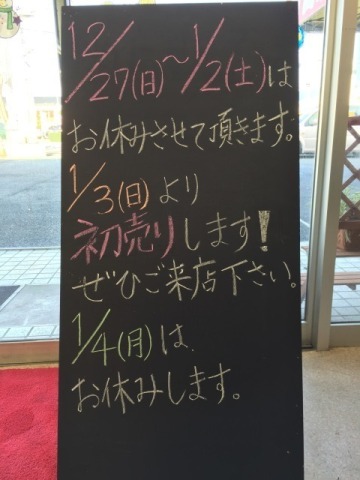 12/27(日)~1/2(土)は
お休みさせて頂きます。
1/3(日)より
初売りします!
ぜひご来店下さい。
1/4(月)は
お休みします。